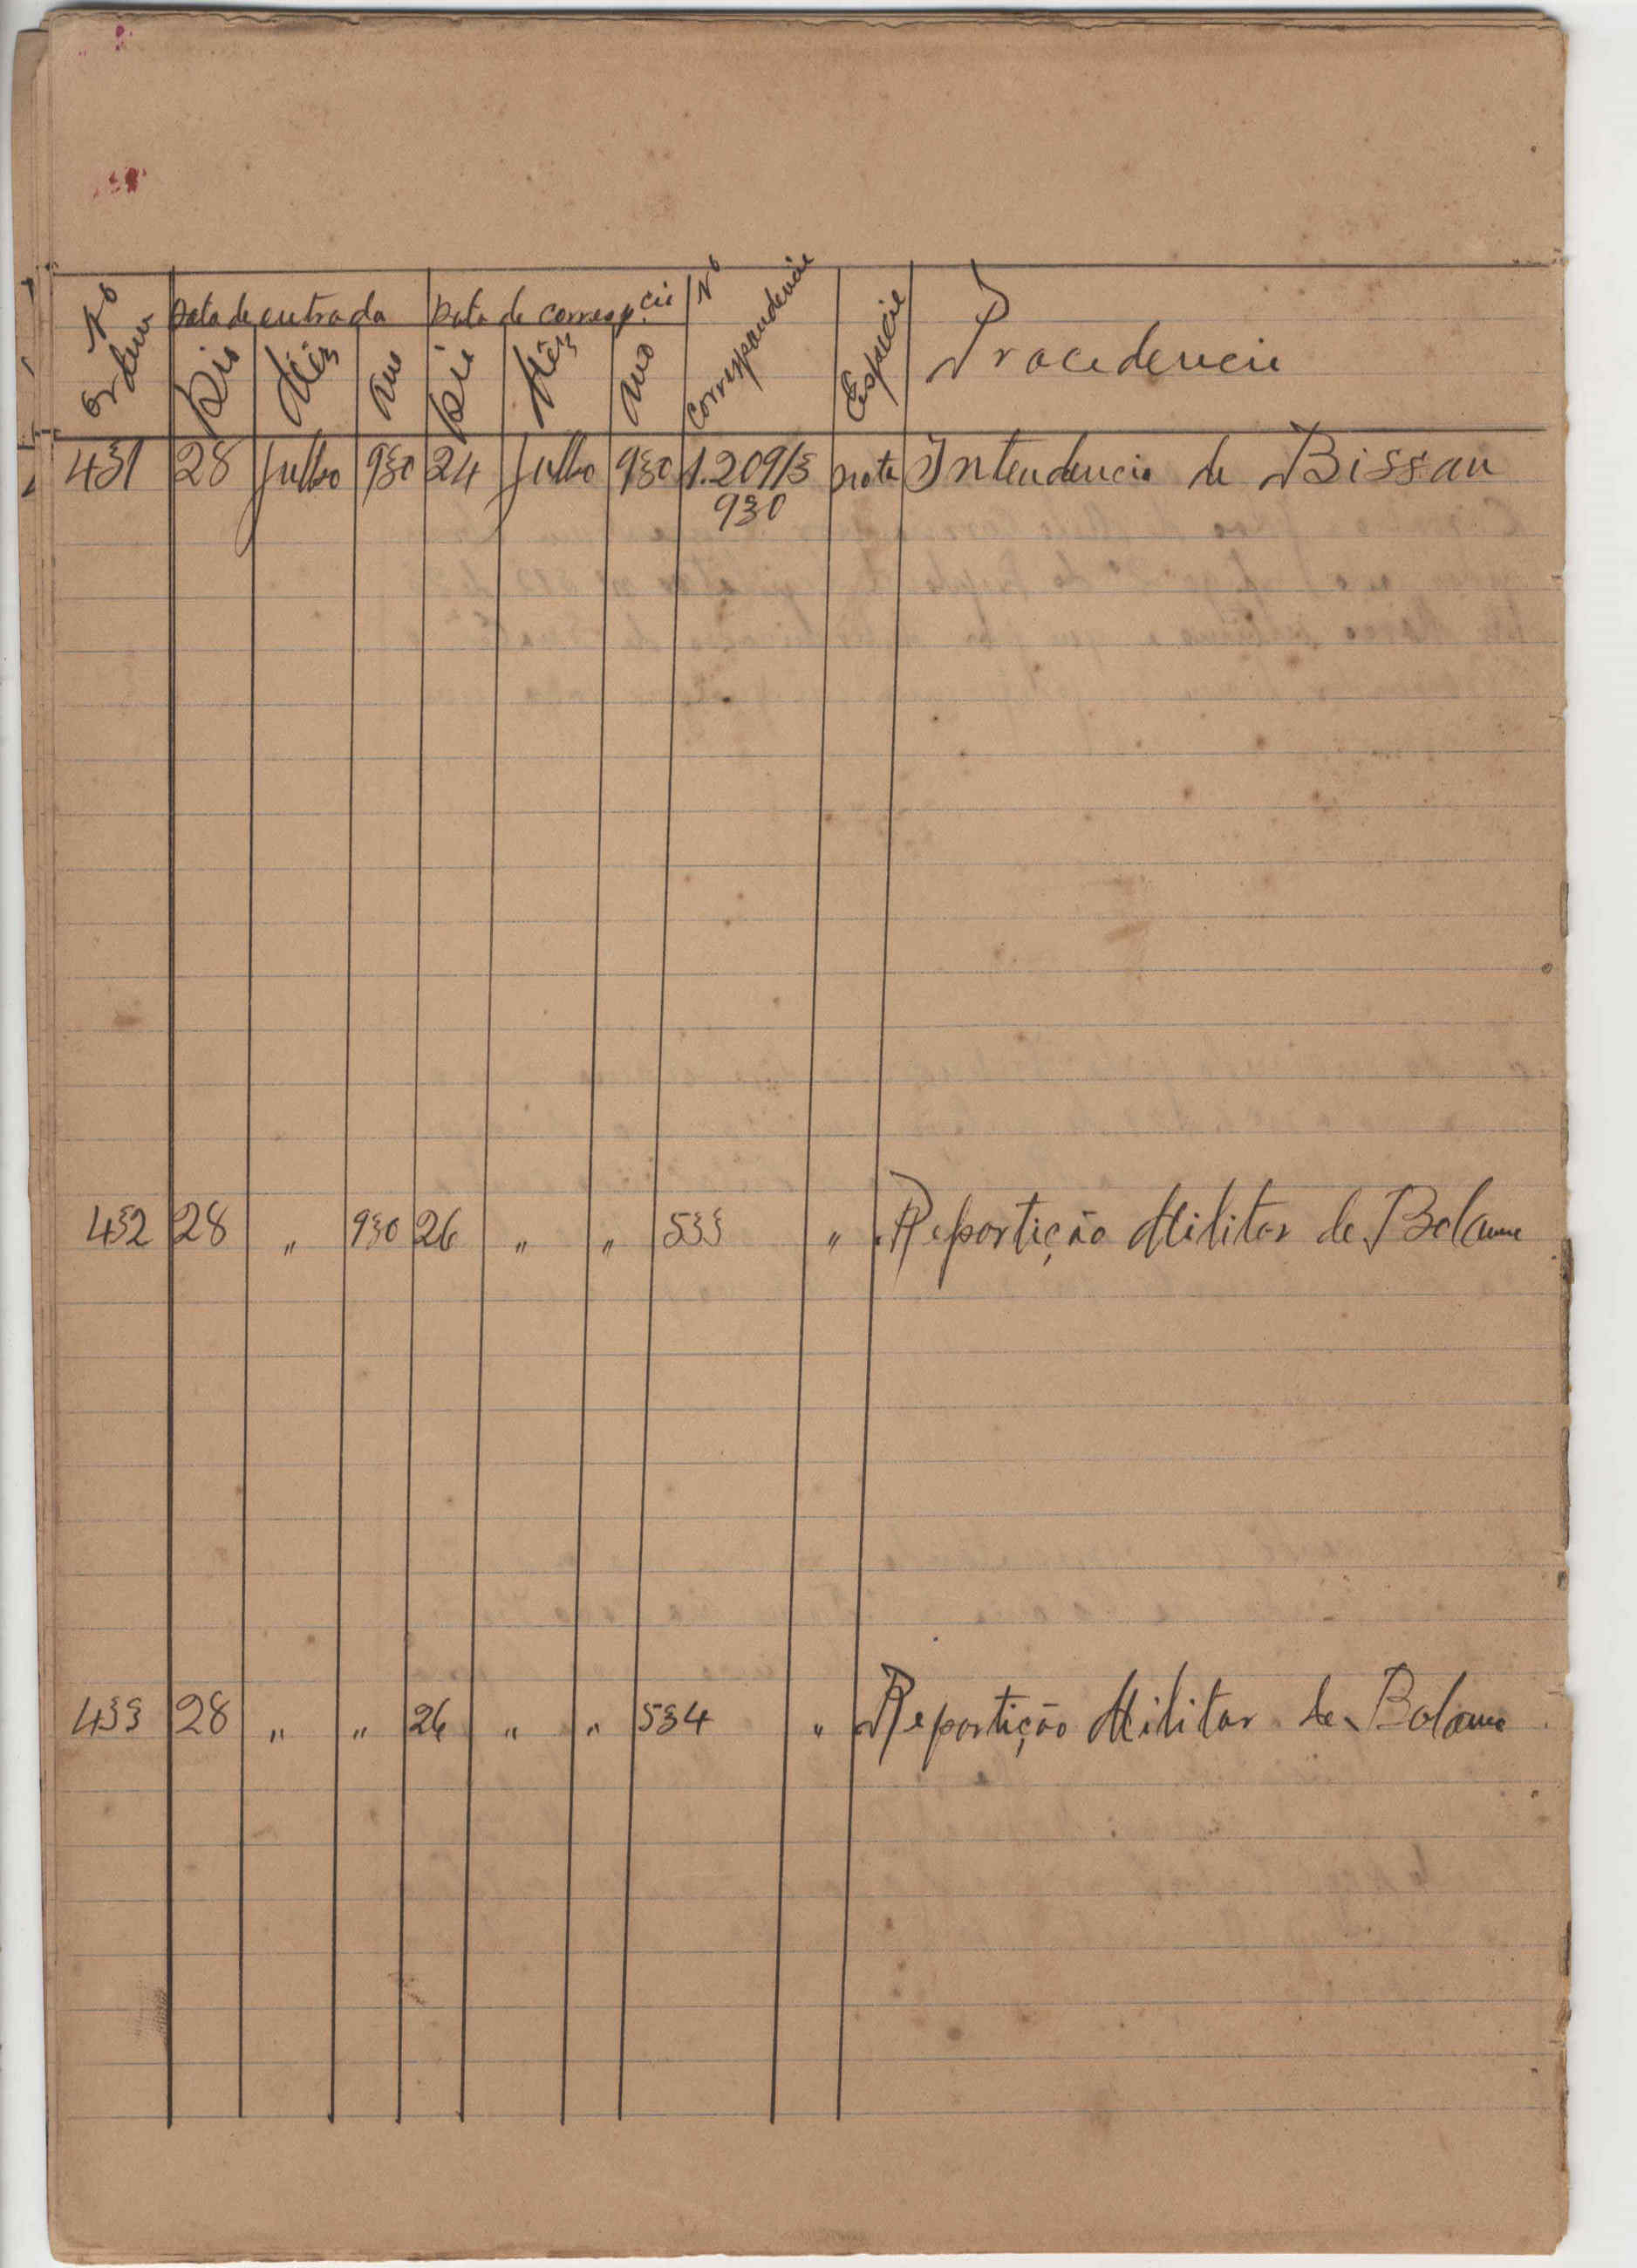 Nº Ordem Data de entrada Data de corresp.cia Nº correspondencia Especie Procedencia
Dia Mês Ano Dia Mês Ano
431 28 Julho 930 24 Julho 930 1.209/3 nota Intendencia de Bissau
930
432 28 " 930 26 " " 533 " Repartição Militar de Bolama
433 28 " " 26 " " 534 " Repartição Militar de Bolama